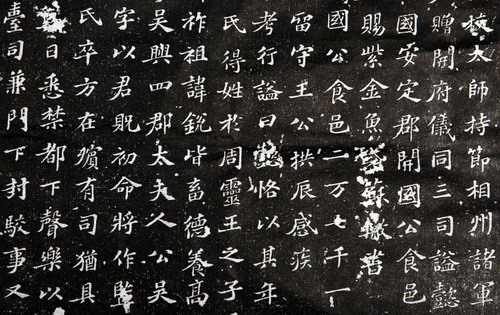 太師持節相州諸軍
贈開府儀同三司謚懿
國安定郡開國公食邑
賜紫金魚袋蘇轍書
國公食邑二万七千一
留守王公拱辰感疾
考行謚曰懿恪以其年
氏得姓於周靈王之子
祚祖諱銳皆畜德養高
吳興四郡太夫人公吳
字以君貺初命將作監
氏卒方在殯有司猶具
日悉禁都下聲樂以
臺司兼門下封駁事又